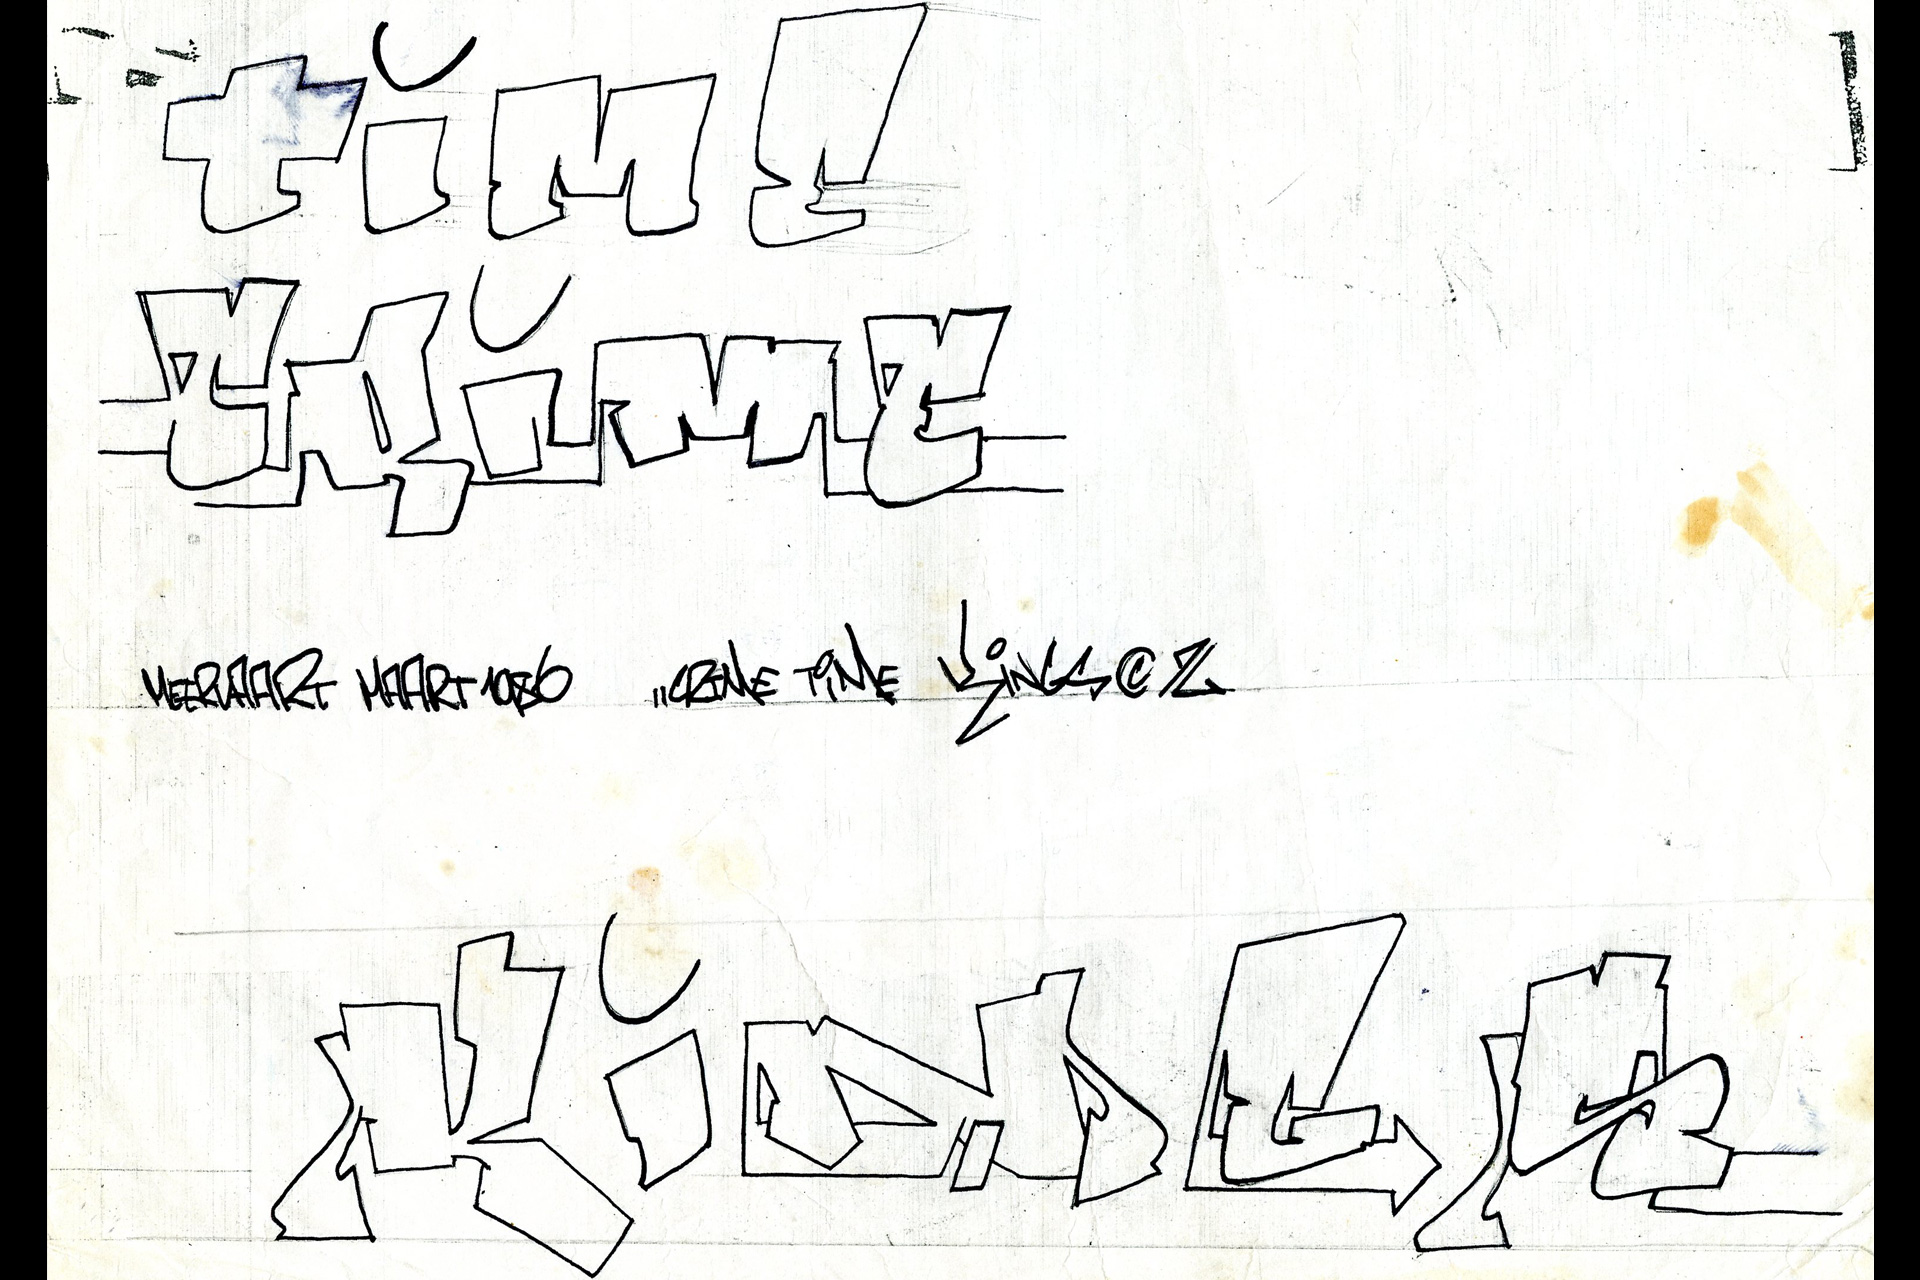 TiME
CRiME
MEERVAART MAART 1986 „CRIME TiME KiNGS © Z
KiNGS